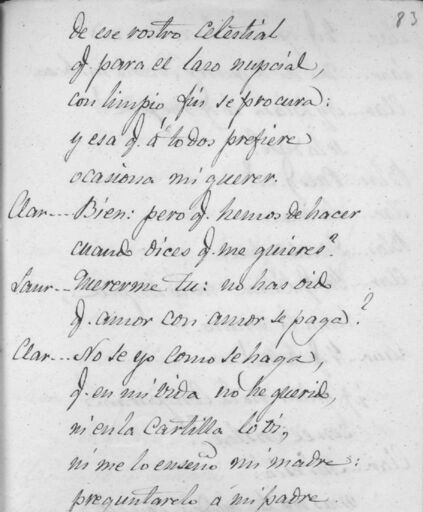 83
de ese rostro celestial
q. para el laso nupcial,
con limpio fin se procura:
y esa q. á todos prefiere
ocasiona mi querer.
Clar... Bien: pero q. hemos de hacer
cuando dices q. me quieres?
Laur... Quererme tu: no has oido
q. amor con amor se paga?
Clar... No se yo como se haga,
q. en mi vida no he querido,
ni en la Cartilla lo ví,
ni me lo enseño mi madre:
preguntarelo á mi padre